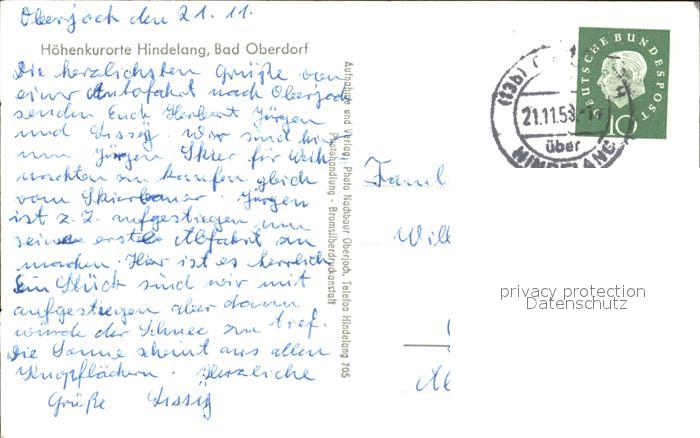 Oberjoch den 21. 11.
Höhenkurorte Hindelang, Bad Oberdorf
Die herzlichsten Grüße von
einer Autofahrt nach Oberjoch
senden Euch Herbert Jürgen
und Sissÿ. Wir sind hier
um Jürgen Skier für Weih
nachten zu kaufen gleich
vom Skierbauer. Jürgen
ist z. Z. aufgestiegen um
seine erste Abfahrt zu
machen. Hier ist es herrlich
Ein Stück sind wir mit
aufgestiegen aber dann
würde der Schnee zu tief.
Die Sonne scheint aus allen
Knopflöchern. Herzliche
Grüße Sissÿ
Aufnahme und Verlag: Photo Nahbaur Oberjoch, Telefon Hindelang 705
Photohandlung - Bromsilberdruckanstalt
DEUTSCHE BUNDESPOST
10
(13b)
21.11.59
über
HINDELANG
Famil
Will
privacy protection
Datenschutz